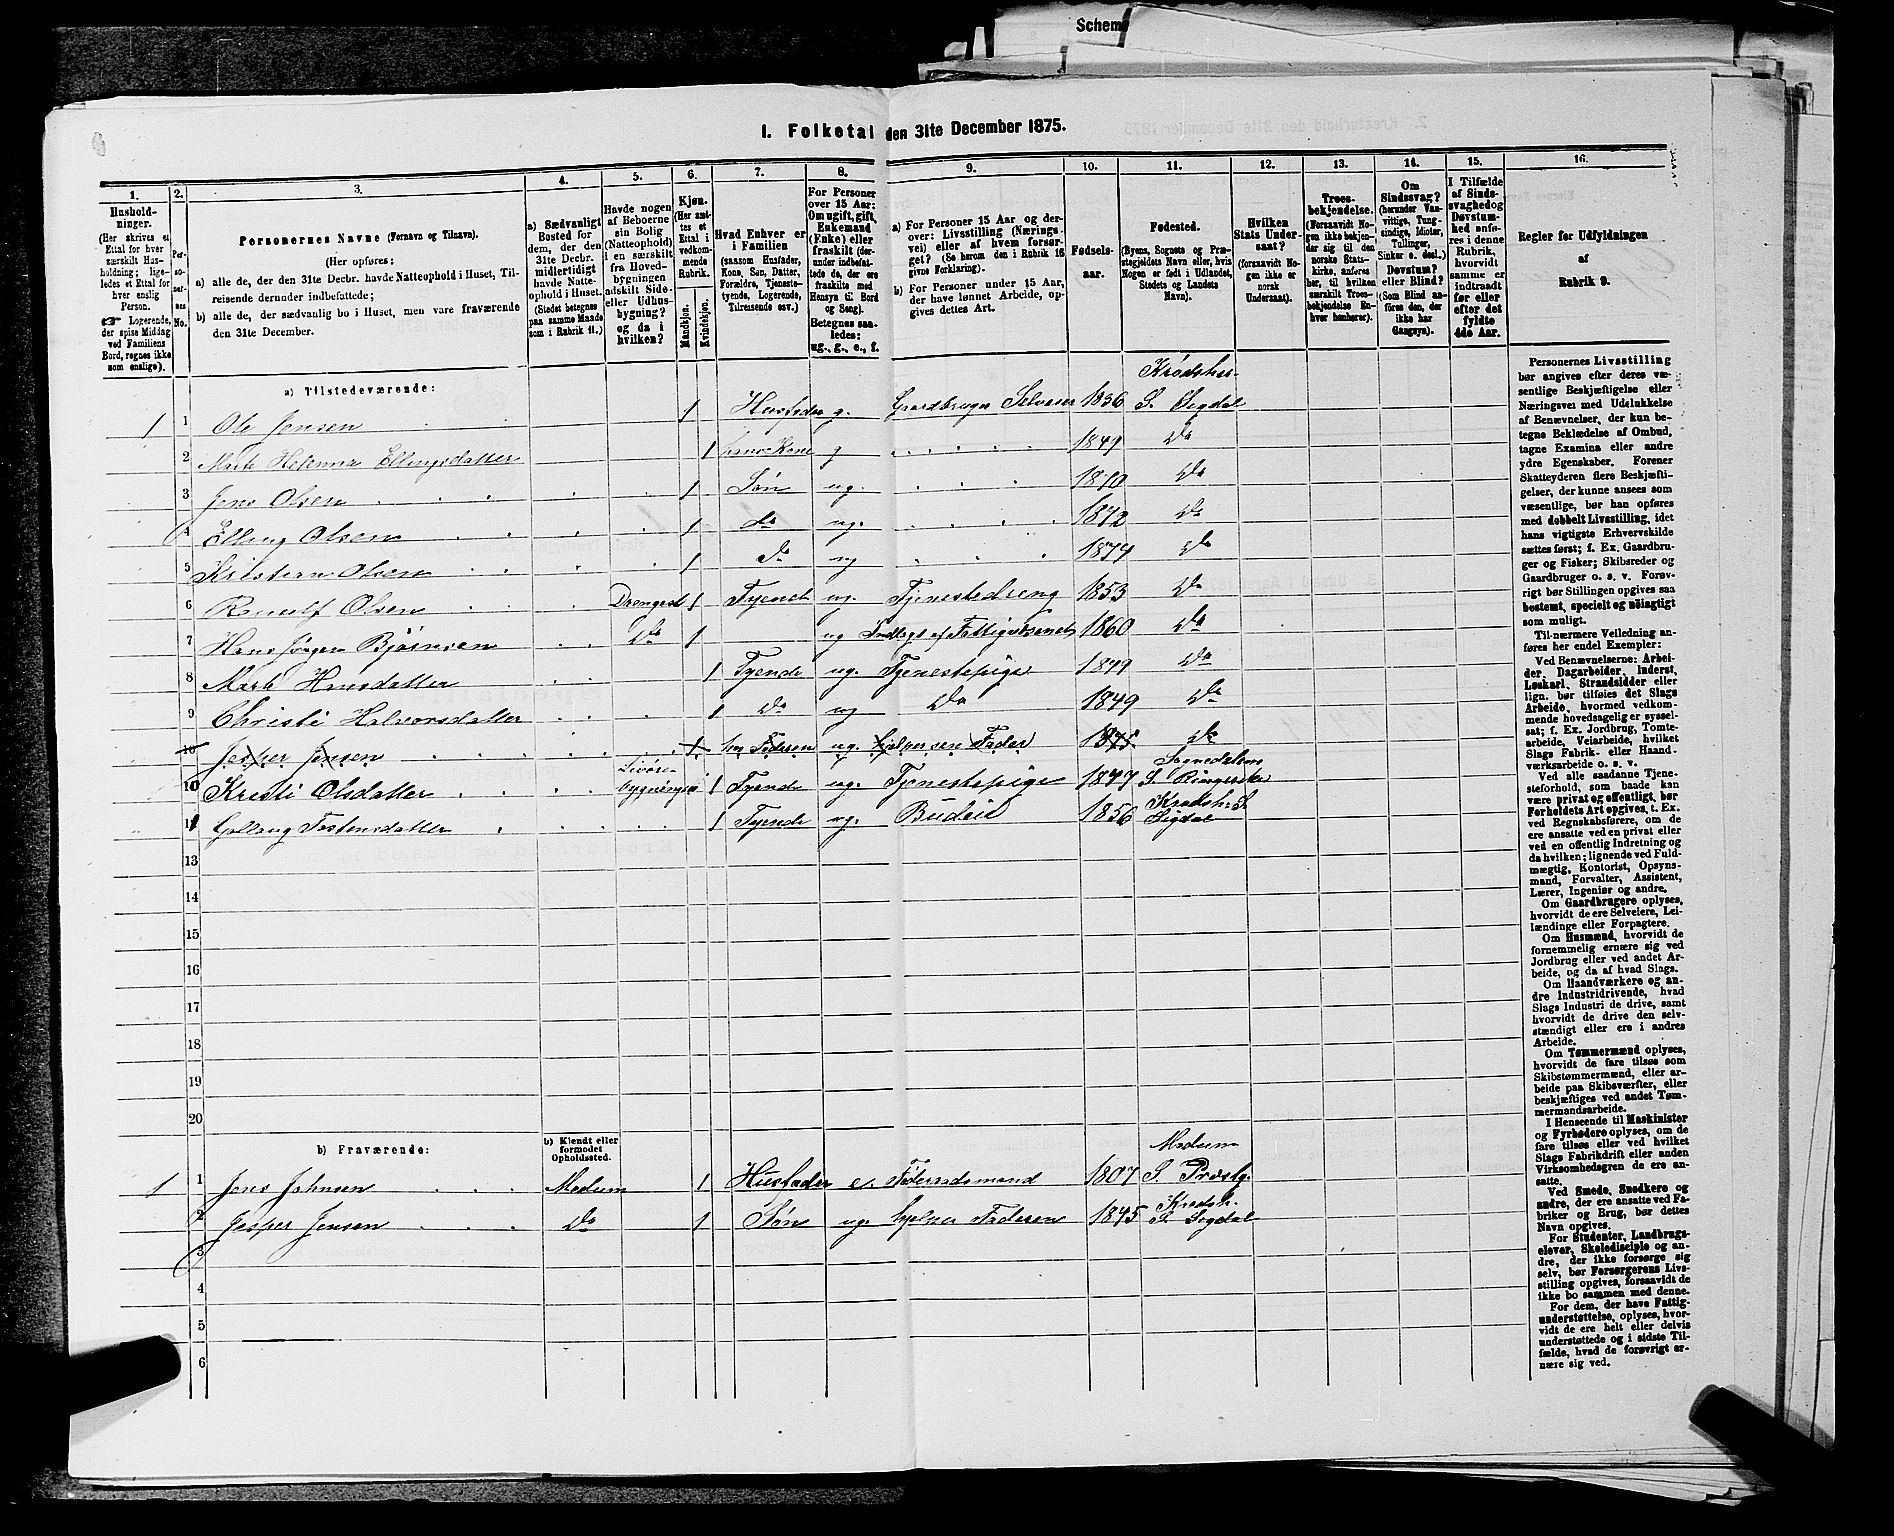 Schema
I. Folketal den 31te December 1875.
1. 2. 3. 4. 5. 6. 7. 8. 9. 10. 11. 12. 13. 14. 15. 16.
Hushold-
ninger.
(Her skrives et
Ettal for hver
særskilt Hus-
holdning; lige-
ledes et Ettal for
hver enslig
Person.
☞ Logerende,
der spise Middag
ved Familiens
Bord, regnes ikke
som enslige).
Per-
so-
ner-
nes
No.
Personernes Navne (Fornavn og Tilnavn).
(Her opføres:
a) alle de, der den 31te Decbr. havde Natteophold i Huset, Til-
reisende derunder indbefattede;
b) alle de, der sædvanlig bo i Huset, men vare fraværende
den 31te December.
a) Sædvanligt
Bosted for
dem, der den
31te Decbr.
midlertidigt
havde Natte-
ophold i Huset.
(Stedet betegnes
paa samme Maade
som i Rubrik 11.)
Havde nogen
af Beboerne
sin Bolig
(Natteophold)
i en særskilt
fra Hoved-
bygningen
adskilt Side-
eller Udhus-
bygning?
og da i
hvilken?
Kjøn.
(Her sæt-
tes et
Ettal i
vedkom-
mende
Rubrik.
Mandkjøn.
Kvindekjøn.
Hvad Enhver er
i Familien
(saasom Husfader,
Kone, Søn, Datter,
Forældre, Tjeneste-
tyende, Logerende,
Tilreisende osv.)
For Personer
over 15 Aar:
Om ugift, gift,
Enkemand
(Enke) eller
fraskilt (der-
under indbefat-
tede de, der ere
fraskilte med
Hensyn til Bord
og Seng).
Betegnes saa-
ledes:
ug., g., e., f.
a) For Personer 15 Aar og der-
over: Livsstilling (Nærings-
vei) eller af hvem forsør-
get? (Se herom den i Rubrik 16
givne Forklaring).
b) For Personer under 15 Aar,
der have lønnet Arbeide, op-
gives dettes Art.
Fødsels-
aar.
Fødested.
(Byens, Sognets og Præ-
stegjeldets Navn eller, hvis
Nogen er født i Udlandet,
Stedets og Landets
Navn).
Hvilken
Stats Under-
saat?
(forsaavidt No-
gen ikke er
norsk
Undersaat).
Troes-
bekjendelse.
(Forsaavidt No-
gen ikke bekjen-
der sig til den
norske Stats-
kirke, anføres
her, til hvilken
særskilt Troes-
bekjendelse En-
hver henhører).
Om
Sindssvag?
(herunder Van-
vittige, Tung-
sindige, Idioter,
Tullinger,
Sinker o. desl.)
Døvstum?
eller Blind?
(Som Blind an-
føres den, der
ikke har
Gangsyn).
I Tilfælde
af Sinds-
svaghed og
Døvstum-
hed anfø-
res i denne
Rubrik,
hvorvidt
samme er
indtraadt
før eller
efter det
fyldte
4de Aar.
Regler for Udfyldningen
af
Rubrik 9.
a) Tilstedeværende:
1 1 Ole Jensen 1 Husfader g. Gaardbruger Selveier 1836 Krødsher. S. Sigdal
2 Marte Helenna Ellingsdatter 1 hans Kone g 1849 Do
3 Jens Olsen 1 Søn ug. 1870 Do
4 Elling Olsen 1 do ug. 1872 Do
5 Kristian Olsen 1 do ug 1874 Do
6 Olsen 1 Tyende ug. Tjenestedreng 1853 Do
7 Hans Jørgen Bjørnsen Do 1 ug Indlagt af Fattigvæsenet 1860 Do
8 Marte Hansdatter 1 Tyende ug. Tjenestepige 1849 Do
9 Christi Halvorsdatter 1 Do ug Do 1849 Do
10 Jesper Jensen 1 hos Faderen ug. hjelper sin Fader 1845 Do
10 Kristi Olsdatter 1 Tyende ug. Tjenestepige 1847 Sognedalens S. Ringerike
11 Tostensdatter 1 Tyende ug. Budeie 1856 Krødsh. S. Sigdal
13
14
15
16
17
18
19
20
b) Fraværende:
b) Kjendt eller
formodet
Opholdssted.
1 1 Jens Johnsen Modum 1 Husfader e. Føderaadsmand 1807 Modum S. Præstg.
2 Jesper Jensen Do 1 Søn ug. hjelper Faderen 1845 Krødsh. S. Sigdal
3
4
5
6
Personernes Livsstilling
bør angives efter deres væ-
sentlige Beskjæftigelse eller
Næringsvei med Udelukkelse
af Benævnelser, der kun be-
tegne Beklædelse af Ombud,
tagne Examina eller andre
ydre Egenskaber. Forener
Skatteyderen flere Beskjæfti-
gelser, der kunne ansees som
væsentlige, bør han opføres
med dobbelt Livsstilling, idet
hans vigtigste Erhvervskilde
sættes først; f. Ex. Gaardbru-
ger og Fisker; Skibsreder og
Gaardbruger o. s. v. Forøv-
rigt bør Stillingen opgives saa
bestemt, specielt og nøiagtigt
som muligt.
Til nærmere Veiledning an-
føres her endel Exempler:
Ved Benævnelserne: Arbei-
der, Dagarbeider, Inderst,
Løskarl, Strandsidder eller
lign. bør tilføies det Slags
Arbeide, hvormed vedkom-
mende hovedsagelig er syssel-
sat; f. Ex. Jordbrug, Tomte-
arbeide, Veiarbeide, hvilket
Slags Fabrik- eller Haand-
værksarbeide o. s. v.
Ved alle saadanne Tjene-
steforhold, som baade kan
være privat og offentligt, bør
Forholdets Art opgives, t. Ex.
ved Regnskabsførere, om de
ere ansatte ved en privat eller
ved en offentlig Indretning og
da hvilken; lignende ved Fuld-
mægtig, Kontorist, Opsyns-
mand, Forvalter, Assistent,
Lærer, Ingeniør og andre.
Om Gaardbrugere oplyses,
hvorvidt de ere Selveiere, Lei-
lændinge eller Forpagtere.
Om Husmænd, hvorvidt de
fornemmelig ernære sig ved
Jordbrug eller ved andet Ar-
beide, og da af hvad Slags.
Om Haandværkere og an-
dre Industridrivende, hvad
Slags Industri de drive, samt
hvorvidt de drive den selv-
stændigt eller ere i andres
Arbeide.
Om Tømmermænd oplyses,
hvorvidt de fare tilsøs som
Skibstømmermænd, eller ar-
beide paa Skibsværfter, eller
beskjæftiges ved andet Tøm-
mermandsarbeide.
I Henseende til Maskinister
og Fyrbødere oplyses, om de
fare tilsøs eller ved hvilket
Slags Fabrikdrift eller anden
Virksomhedsgren de ere an-
satte.
Ved Smede, Snedkere og
andre, der ere ansatte ved Fa-
briker og Brug, bør dettes
Navn opgives.
For Studenter, Landbrugs-
elever, Skoledisciple og an-
dre, der ikke forsørge sig
selv, bør Forsørgerens Livs-
stilling opgives, forsaavidt de
ikke bo sammen med denne.
For dem, der have Fattig-
understøttelse, oplyses, hvor-
vidt de ere helt eller delvis
understøttede og i sidste Til-
fælde, hvad de forøvrigt er-
nære sig ved.